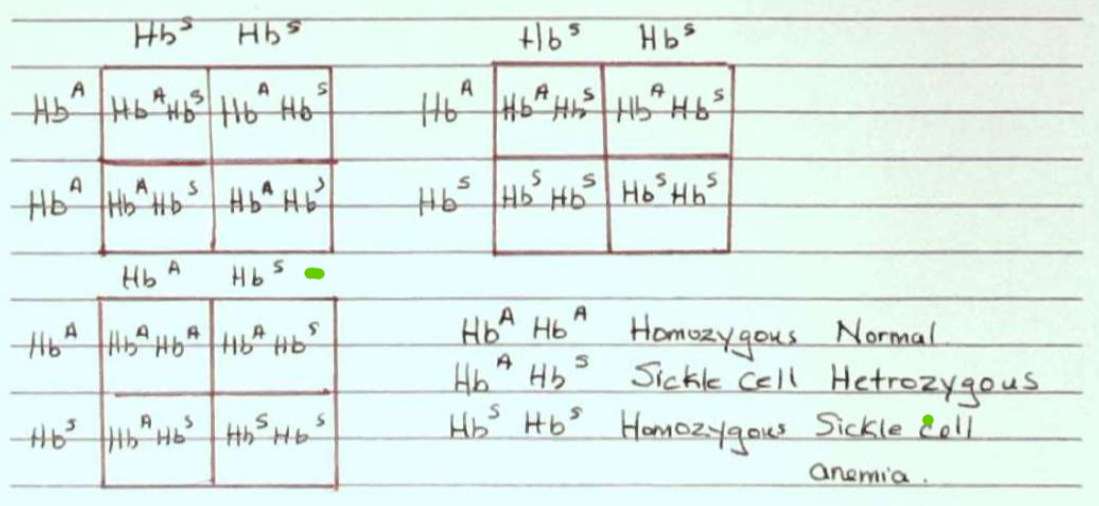 Hb^S Hb^S
Hb^A Hb^A Hb^S Hb^A Hb^S
Hb^A Hb^A Hb^S Hb^A Hb^S
Hb^S Hb^S
Hb^A Hb^A Hb^S Hb^A Hb^S
Hb^S Hb^S Hb^S Hb^S Hb^S
Hb^A Hb^S
Hb^A Hb^A Hb^A Hb^A Hb^S
Hb^S Hb^A Hb^S Hb^S Hb^S
Hb^A Hb^A Homozygous Normal
Hb^A Hb^S Sickle cell Hetrozygous
Hb^S Hb^S Homozygous Sickle cell
anemia.